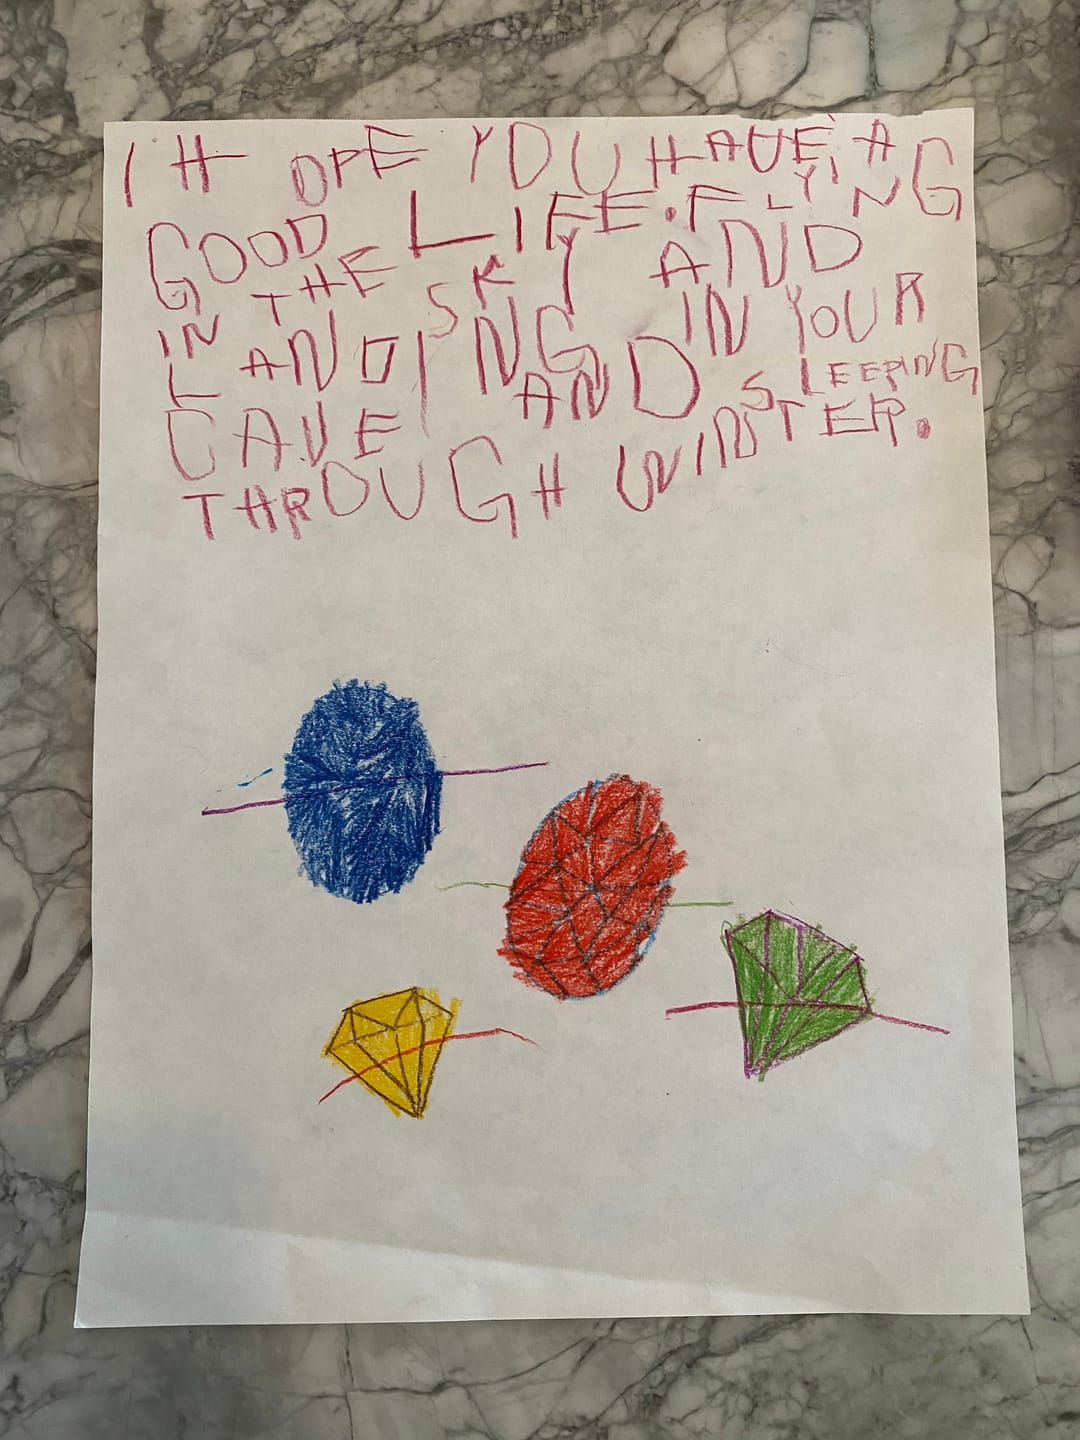 I HOPE YOU HAVE A
GOOD LIFE. FLYING
IN THE SKY AND
LANDING IN YOUR
CAVE AND SLEEPING
THROUGH WINSTER.